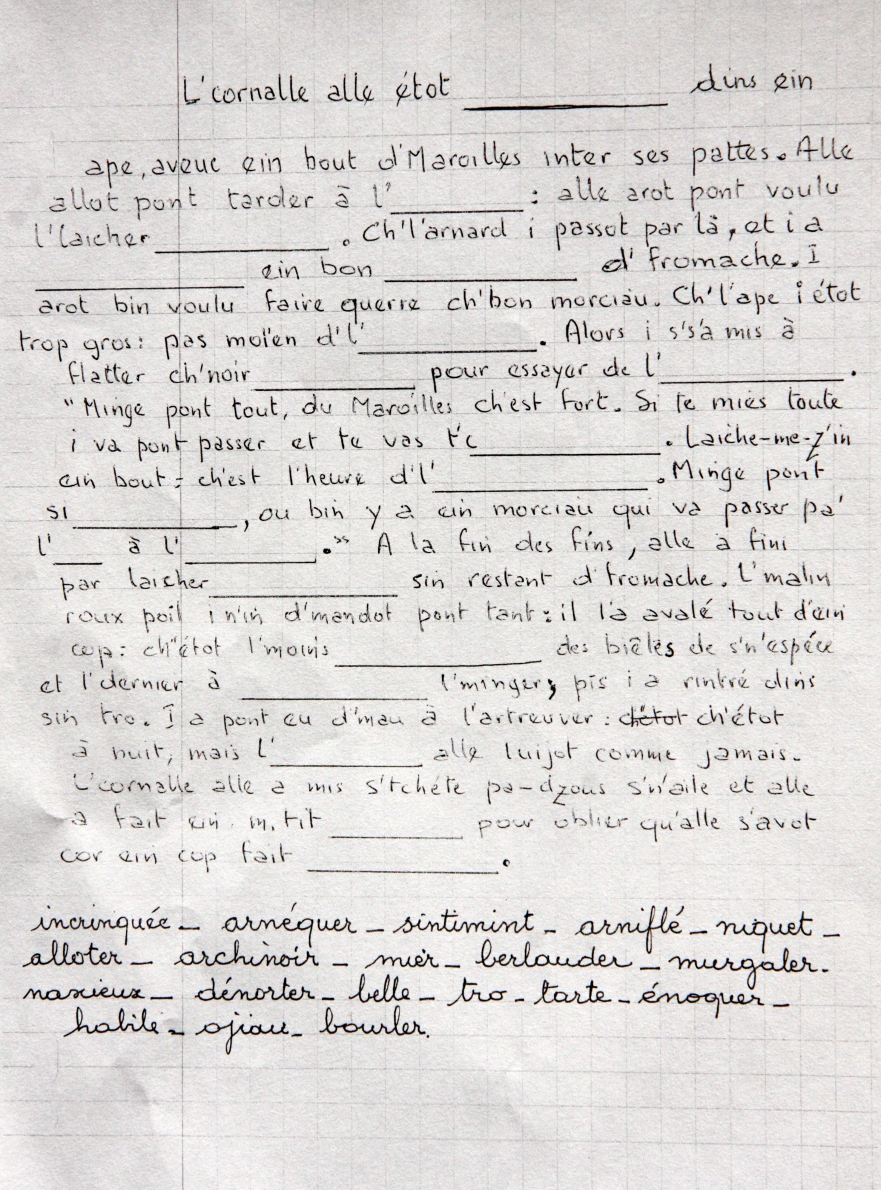 L'cornalle alle étot ________ dins ein
ape, aveuc ein bout d'Maroilles inter ses pattes. Alle
allot pont tarder à l' ________ : alle arot pont voulu
l'laicher ________ . Ch'l'arnard i passot par là, et i a
________ ein bon ________ d'fromache. I
arot bin voulu faire querre ch'bon morciau. Ch'l'ape i étot
trop gros : pas moïen d'l' ________ . Alors i s's'a mis à
flatter ch'noir ________ pour essayer de l' ________ .
"Minge pont tout, du Maroilles ch'est fort. Si te miés toute
i va pont passer et te vas t'e ________ . Laiche-me-z'in
ein bout : ch'est l'heure d'l' ________ . Minge pont
si ________ , ou bin y a ein morciau qui va passer pa'
l' ____ à l' ________ ." A la fin des fins, alle a fini
par laicher ________ sin restant d'fromache. L'malin
roux poil i n'in d'mandot pont tant : il l'a avalé tout d'ein
cop : ch'étot l'moins ________ des biêtes de s'n'espéce
et l'dernier à ________ l'minger, pis i a rintré dins
sin tro. I a pont eu d'mau à l'artreuver : ch'étot ch'étot
à nuit, mais l' ________ alle luijot comme jamais.
L'cornalle alle a mis s'tchéte pa-dzous s'n'aile et alle
a fait ein m'tit ________ pour oblier qu'alle s'avot
cor ein cop fait ________ .
incrinquée _ arnéquer _ sintimint _ arniflé _ niquet _
alloter _ archinoir _ mier _ berlauder _ murgaler.
naxieux _ dénorter _ belle _ tro _ tarte _ énoquer _
habile _ ojiau _ bourler.